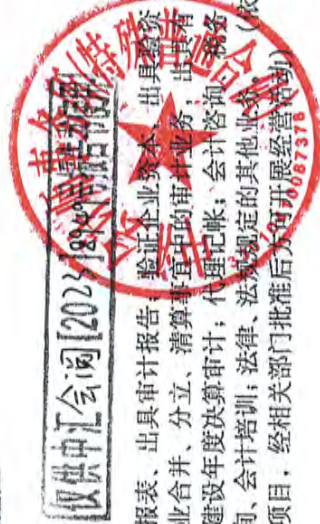 仅供中汇会阅[202
报表、出具审计报告；验证企业资本，出具验资
业合并、分立、清算事宜中的审计业务，出具有
建设年度决算审计；代理记帐；会计咨询、税务
、会计培训；法律、法规规定的其他业务。（依
项目，经相关部门批准后方可开展经营活动）
特殊普通合
0087378